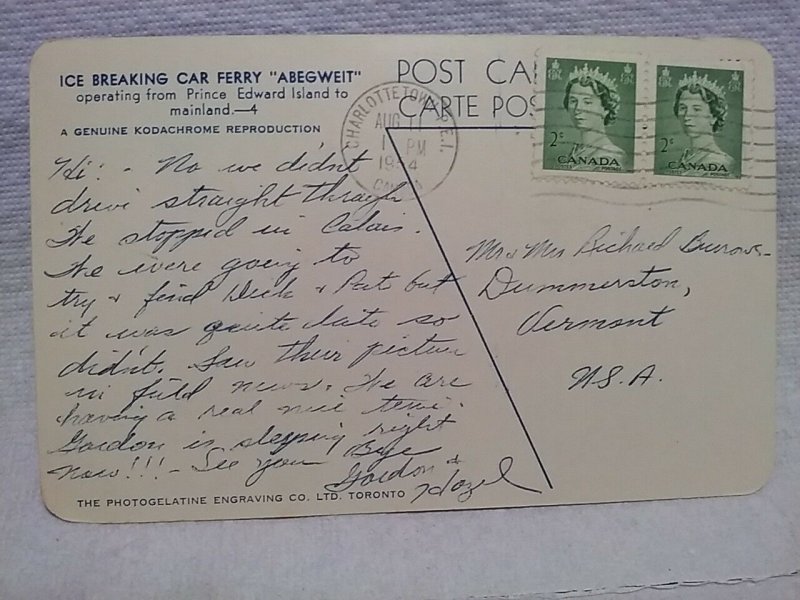 ICE BREAKING CAR FERRY "ABEGWEIT"
operating from Prince Edward Island to
mainland.—4
A GENUINE KODACHROME REPRODUCTION
POST CA
CARTE POS
CHARLOTTETOWN P.E.I.
AUG 11
1 PM
1954
CANADA
2¢
CANADA
2¢
CANADA
Hi: - No we didn't
drive straight through
We stopped in Calais.
We were going to
try + find Dick + Pat but
it was quite late so
didn't. Saw their picture
in field news. We are
having a real nice time.
Gordon is sleeping right
now!!! - See you Bye
Gordon +
Hazel
Mr + Mrs Richard Burrows-
Dummerston,
Vermont
U.S.A.
THE PHOTOGELATINE ENGRAVING CO. LTD. TORONTO